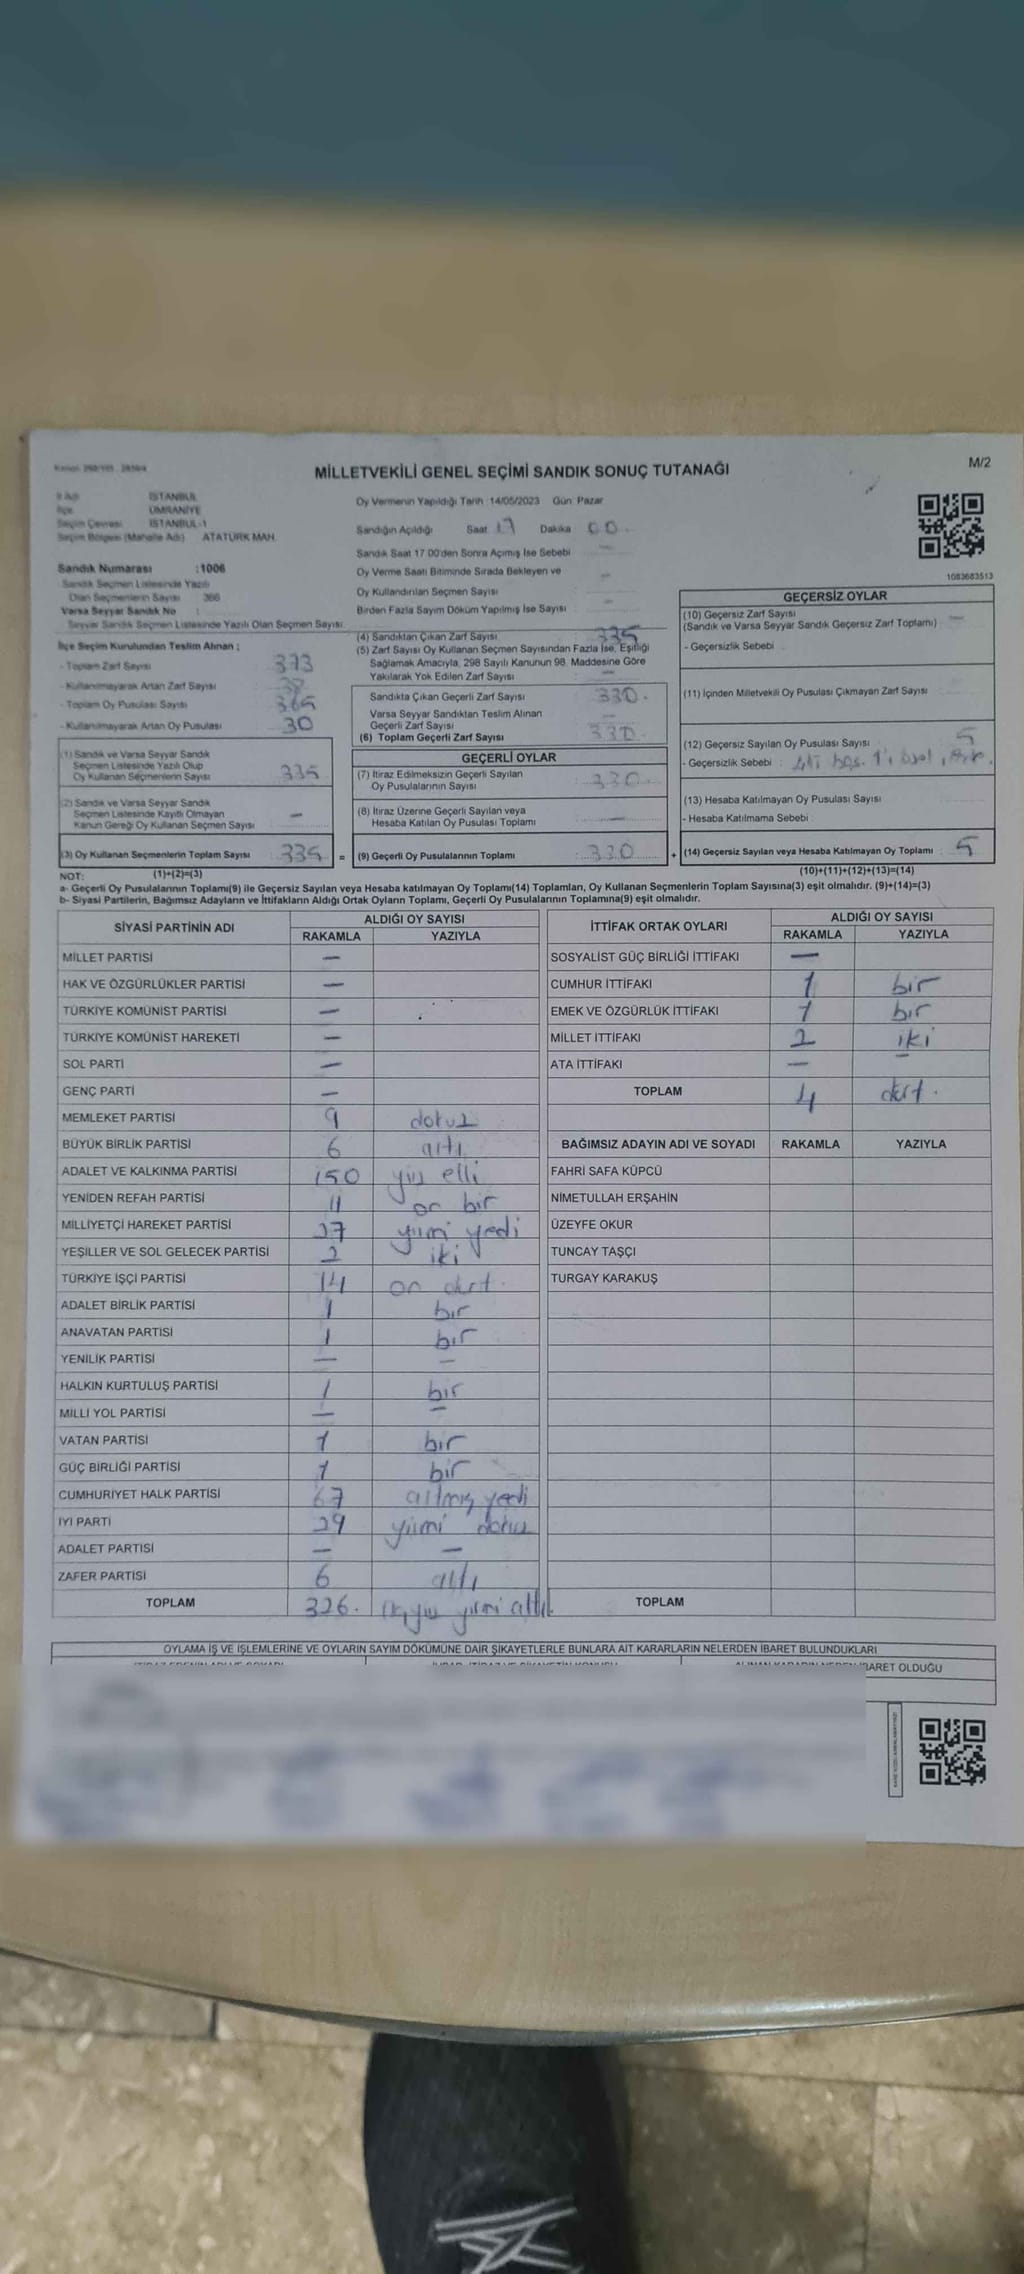 MİLLETVEKİLİ GENEL SEÇİMİ SANDIK SONUÇ TUTANAĞI
M/2
İSTANBUL
İlçe ÜMRANİYE
Seçim Çevresi İSTANBUL-1
Seçim Bölgesi (Mahalle Adı) ATATÜRK MAH.
Sandık Numarası :1006
Sandık Seçmen Listesinde Yazılı
Olan Seçmenlerin Sayısı 366
Varsa Seyyar Sandık No :
Seyyar Sandık Seçmen Listesinde Yazılı Olan Seçmen Sayısı
İlçe Seçim Kurulundan Teslim Alınan ;
- Toplam Zarf Sayısı 373
- Kullanılmayarak Artan Zarf Sayısı 38
- Toplam Oy Pusulası Sayısı 365
- Kullanılmayarak Artan Oy Pusulası 30
(1) Sandık ve Varsa Seyyar Sandık
Seçmen Listesinde Yazılı Olup
Oy Kullanan Seçmenlerin Sayısı 335
(2) Sandık ve Varsa Seyyar Sandık
Seçmen Listesinde Kayıtlı Olmayan
Kanun Gereği Oy Kullanan Seçmen Sayısı —
(3) Oy Kullanan Seçmenlerin Toplam Sayısı 335 =
Oy Vermenin Yapıldığı Tarih :14/05/2023 Gün: Pazar
Sandığın Açıldığı Saat 17 Dakika 00
Sandık Saat 17.00'den Sonra Açımış İse Sebebi —
Oy Verme Saati Bitiminde Sırada Bekleyen ve
Oy Kullandırılan Seçmen Sayısı —
Birden Fazla Sayım Döküm Yapılmış İse Sayısı —
(4) Sandıktan Çıkan Zarf Sayısı 335
(5) Zarf Sayısı Oy Kullanan Seçmen Sayısından Fazla İse, Eşitliği
Sağlamak Amacıyla, 298 Sayılı Kanunun 98. Maddesine Göre
Yakılarak Yok Edilen Zarf Sayısı —
Sandıkta Çıkan Geçerli Zarf Sayısı 330
Varsa Seyyar Sandıktan Teslim Alınan
Geçerli Zarf Sayısı —
(6) Toplam Geçerli Zarf Sayısı 330
GEÇERLİ OYLAR
(7) İtiraz Edilmeksizin Geçerli Sayılan
Oy Pusulalarının Sayısı 330
(8) İtiraz Üzerine Geçerli Sayılan veya
Hesaba Katılan Oy Pusulası Toplamı —
(9) Geçerli Oy Pusulalarının Toplamı : 330 +
1083683513
GEÇERSİZ OYLAR
(10) Geçersiz Zarf Sayısı —
(Sandık ve Varsa Seyyar Sandık Geçersiz Zarf Toplamı)
- Geçersizlik Sebebi
(11) İçinden Milletvekili Oy Pusulası Çıkmayan Zarf Sayısı —
(12) Geçersiz Sayılan Oy Pusulası Sayısı 5
- Geçersizlik Sebebi :
(13) Hesaba Katılmayan Oy Pusulası Sayısı
- Hesaba Katılmama Sebebi
(14) Geçersiz Sayılan veya Hesaba Katılmayan Oy Toplamı 5
NOT: (1)+(2)=(3) (10)+(11)+(12)+(13)=(14)
a- Geçerli Oy Pusulalarının Toplamı(9) ile Geçersiz Sayılan veya Hesaba katılmayan Oy Toplamı(14) Toplamları, Oy Kullanan Seçmenlerin Toplam Sayısına(3) eşit olmalıdır. (9)+(14)=(3)
b- Siyasi Partilerin, Bağımsız Adayların ve İttifakların Aldığı Ortak Oyların Toplamı, Geçerli Oy Pusulalarının Toplamına(9) eşit olmalıdır.
SİYASİ PARTİNİN ADI ALDIĞI OY SAYISI
RAKAMLA YAZIYLA
MİLLET PARTİSİ —
HAK VE ÖZGÜRLÜKLER PARTİSİ —
TÜRKİYE KOMÜNİST PARTİSİ —
TÜRKİYE KOMÜNİST HAREKETİ —
SOL PARTİ —
GENÇ PARTİ —
MEMLEKET PARTİSİ 9 dokuz
BÜYÜK BİRLİK PARTİSİ 6 altı
ADALET VE KALKINMA PARTİSİ 150 yüz elli
YENİDEN REFAH PARTİSİ 11 on bir
MİLLİYETÇİ HAREKET PARTİSİ 27 yirmi yedi
YEŞİLLER VE SOL GELECEK PARTİSİ 2 iki
TÜRKİYE İŞÇİ PARTİSİ 14 on dört
ADALET BİRLİK PARTİSİ 1 bir
ANAVATAN PARTİSİ 1 bir
YENİLİK PARTİSİ — —
HALKIN KURTULUŞ PARTİSİ 1 bir
MİLLİ YOL PARTİSİ — —
VATAN PARTİSİ 1 bir
GÜÇ BİRLİĞİ PARTİSİ 1 bir
CUMHURİYET HALK PARTİSİ 67 altmış yedi
İYİ PARTİ 29 yirmi dokuz
ADALET PARTİSİ — —
ZAFER PARTİSİ 6 altı
TOPLAM 326. üçyüz yirmi altı
İTTİFAK ORTAK OYLARI ALDIĞI OY SAYISI
RAKAMLA YAZIYLA
SOSYALİST GÜÇ BİRLİĞİ İTTİFAKI —
CUMHUR İTTİFAKI 1 bir
EMEK VE ÖZGÜRLÜK İTTİFAKI 1 bir
MİLLET İTTİFAKI 2 iki
ATA İTTİFAKI — —
TOPLAM 4 dört.
BAĞIMSIZ ADAYIN ADI VE SOYADI RAKAMLA YAZIYLA
FAHRİ SAFA KÜPCÜ
NİMETULLAH ERŞAHİN
ÜZEYFE OKUR
TUNCAY TAŞÇI
TURGAY KARAKUŞ
TOPLAM
OYLAMA İŞ VE İŞLEMLERİNE VE OYLARIN SAYIM DÖKÜMÜNE DAİR ŞİKAYETLERLE BUNLARA AİT KARARLARIN NELERDEN İBARET BULUNDUKLARI
ALINAN KARARIN NEDEN İBARET OLDUĞU